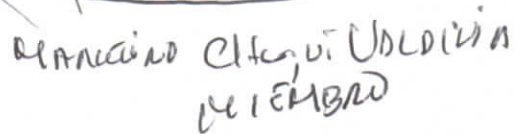 MARCELINO CHUQUI VALDIVIA
MIEMBRO